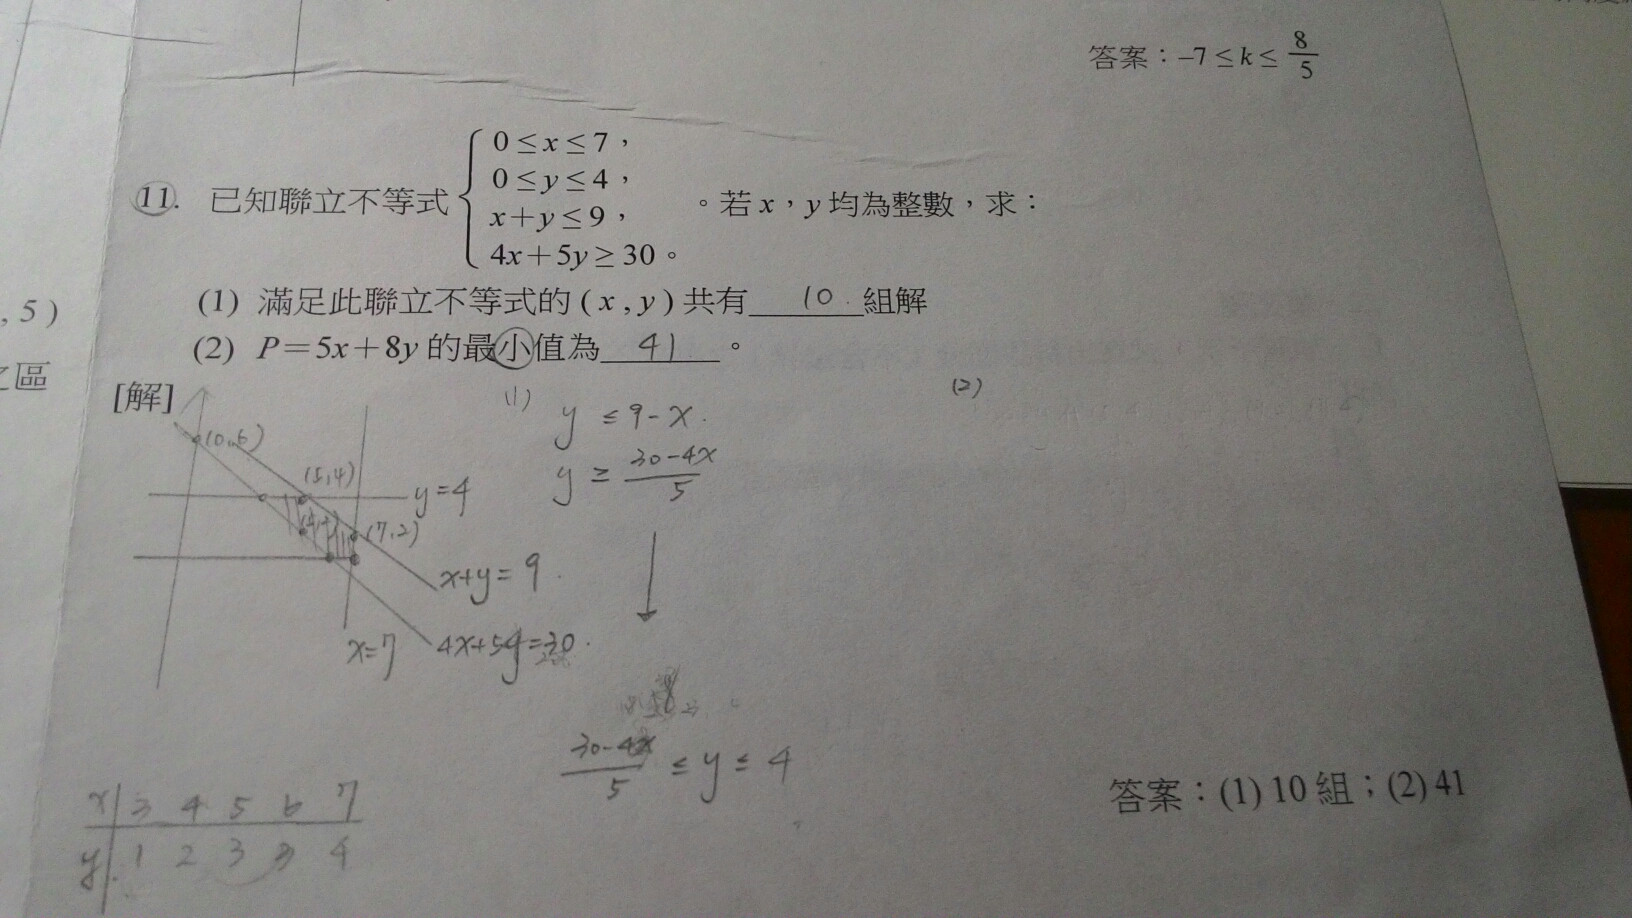 答案：–7 ≤ k ≤ 8/5
11. 已知聯立不等式 { 0 ≤ x ≤ 7，
0 ≤ y ≤ 4，
x＋y ≤ 9，
4x＋5y ≥ 30。
。若 x，y 均為整數，求：
, 5 )
(1) 滿足此聯立不等式的 ( x , y ) 共有 10 組解
(2) P＝5x＋8y 的最小值為 41 。
區
[解]
(1)
(2)
y ≤ 9-x.
y ≥ (30-4x)/5
(0,6)
(5,4)
y=4
(7,2)
x+y=9
x=7
4x+5y=30
(30-4x)/5 ≤ y ≤ 4
x 3 4 5 6 7
y 1 2 3 3 4
答案：(1) 10 組；(2) 41